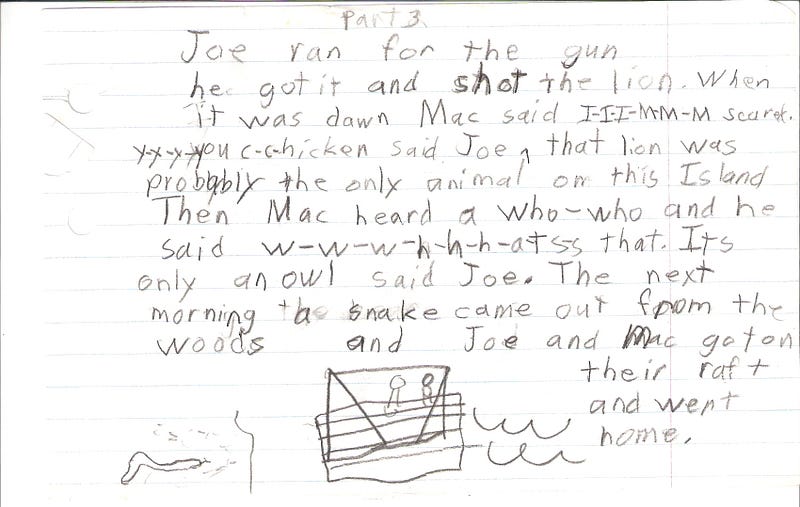 Part 3
Joe ran for the gun
he got it and shot the lion. When
it was dawn Mac said I-I-I-M-M-M scaret.
y-y-y-you c-c-hicken said Joe, that lion was
probably the only animal on this Island
Then Mac heard a who-who and he
said w-w-w-h-h-h-at-s-s that. Its
only an owl said Joe. The next
morning a snake came out from the
woods and Joe and Mac got on
their raft
and went
home.